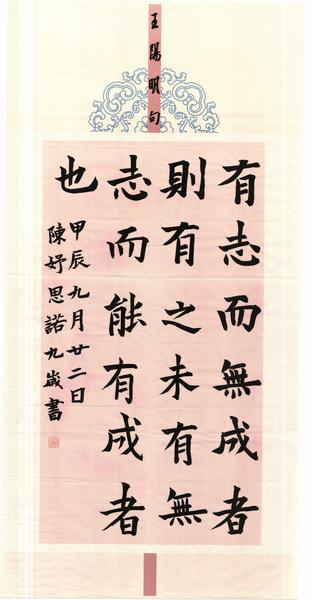 王陽明句
有志而無成者
則有之未有無
志而能有成者
也
甲辰九月廿二日
陳妤思諾九歲書